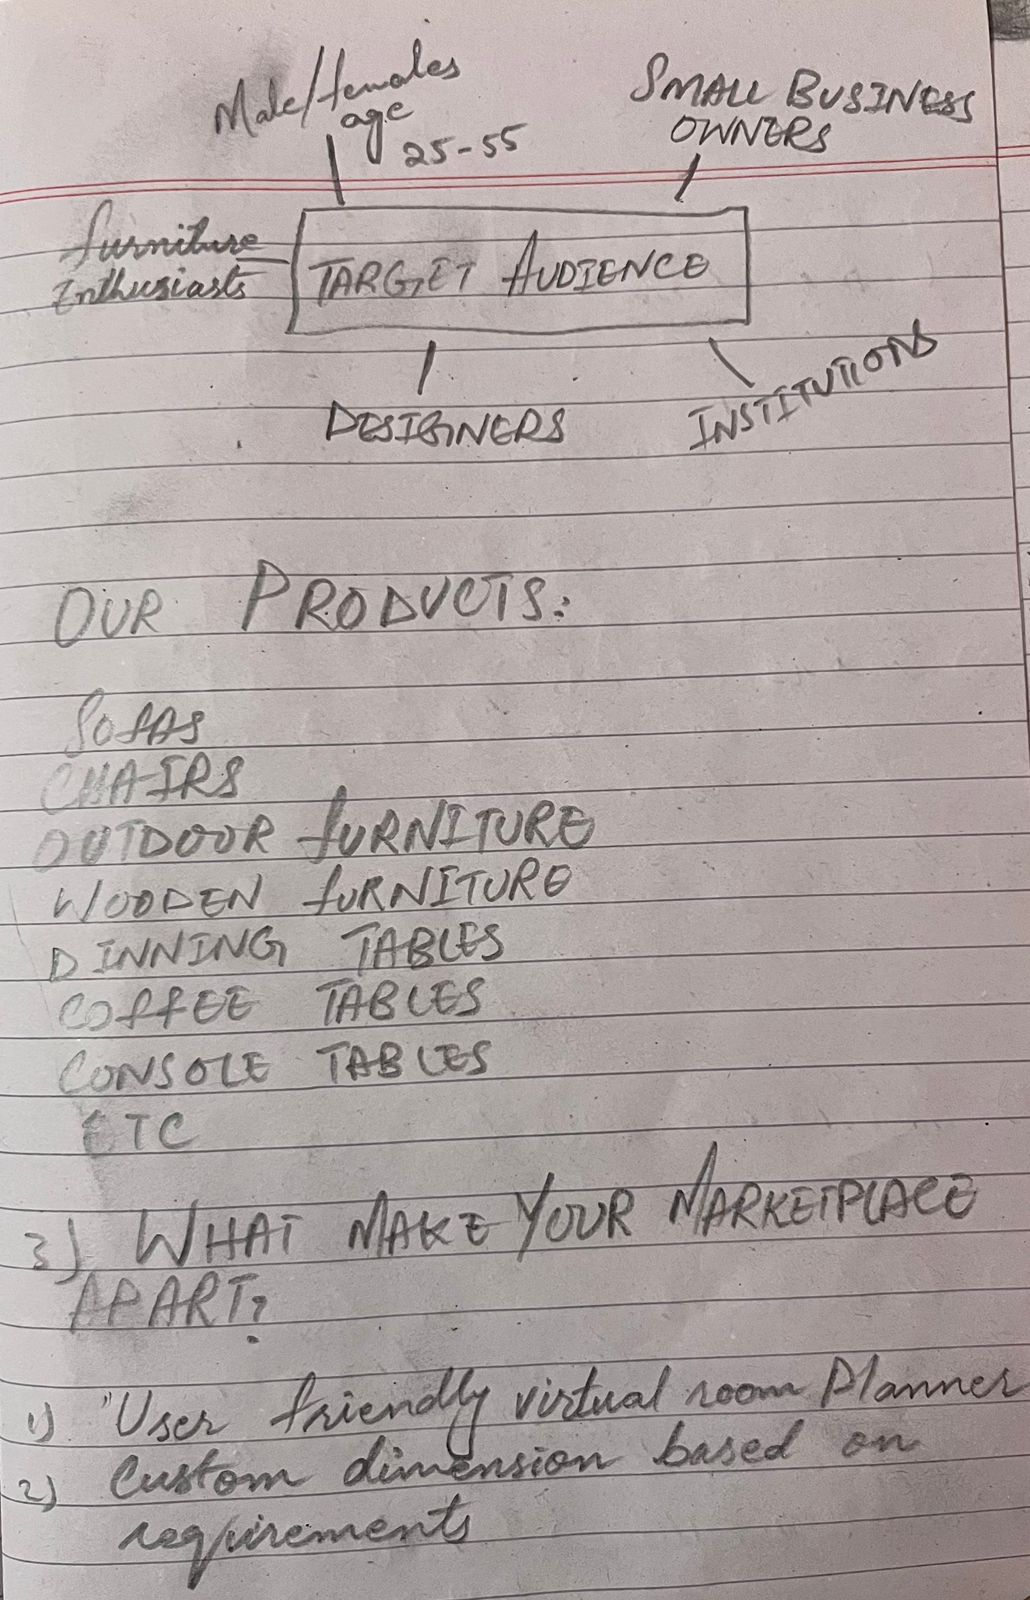 Male/females
age
25-55
SMALL BUSINESS
OWNERS
furniture
Enthusiasts
TARGET AUDIENCE
DESIGNERS
INSTITUTIONS
OUR PRODUCTS:
SOFAS
CHAIRS
OUTDOOR FURNITURE
WOODEN FURNITURE
DINNING TABLES
COFFEE TABLES
CONSOLE TABLES
ETC
3) WHAT MAKE YOUR MARKETPLACE
APART?
1) "User friendly virtual room Planner
2) Custom dimension based on
requirements